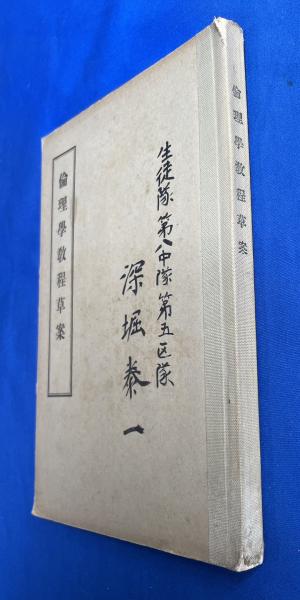 倫理學敎程草案
生徒隊第八中隊第五区隊
深堀泰一
倫理學敎程草案